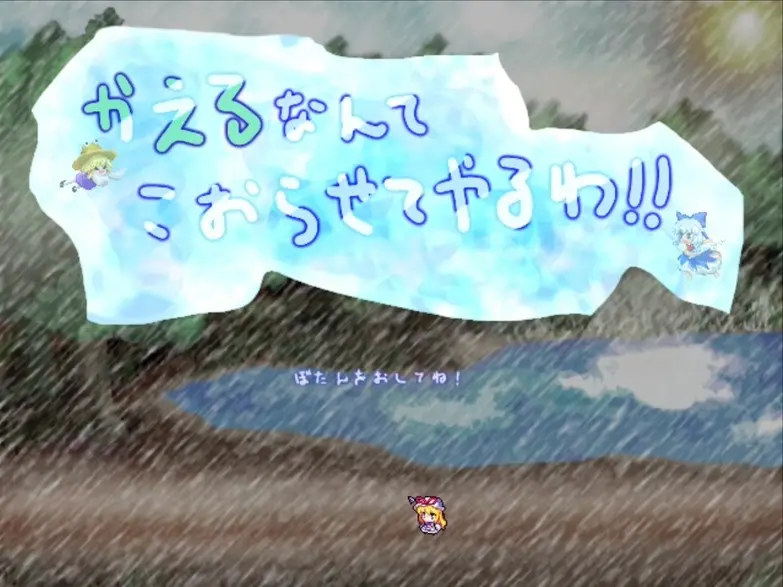 かえるなんて
こおらせてやるわ!!
ぼたんをおしてね!